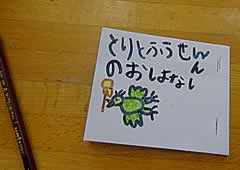 とりとふうせん
のおはなし